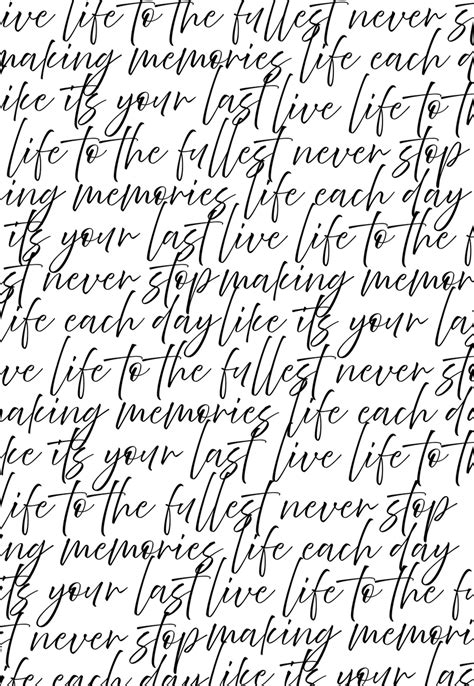 ive life to the fullest never stop
making memories life each da
ike its your last live life to the
life to the fullest never stop
ing memories life each day
its your last live life to the fu
st never stop making memori
life each day like its your las
ive life to the fullest never s
making memories life each da
ike its your last live life to th
life to the fullest never stop
ing memories life each day
its your last live life to the fu
st never stop making memori
life each day like its your las